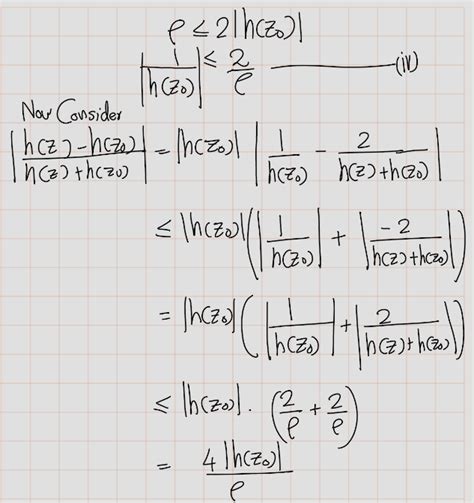 ρ ≤ 2|h(z₀)|
|1/h(z₀)| ≤ 2/ρ ———(iv)
Now Consider
|(h(z)-h(z₀))/(h(z)+h(z₀))| = |h(z₀)| |1/h(z₀) - 2/(h(z)+h(z₀))|
≤ |h(z₀)|(|1/h(z₀)| + |-2/(h(z)+h(z₀))|)
= |h(z₀)|(|1/h(z₀)| + |2/(h(z)+h(z₀))|)
≤ |h(z₀)| · (2/ρ + 2/ρ)
= 4|h(z₀)|/ρ